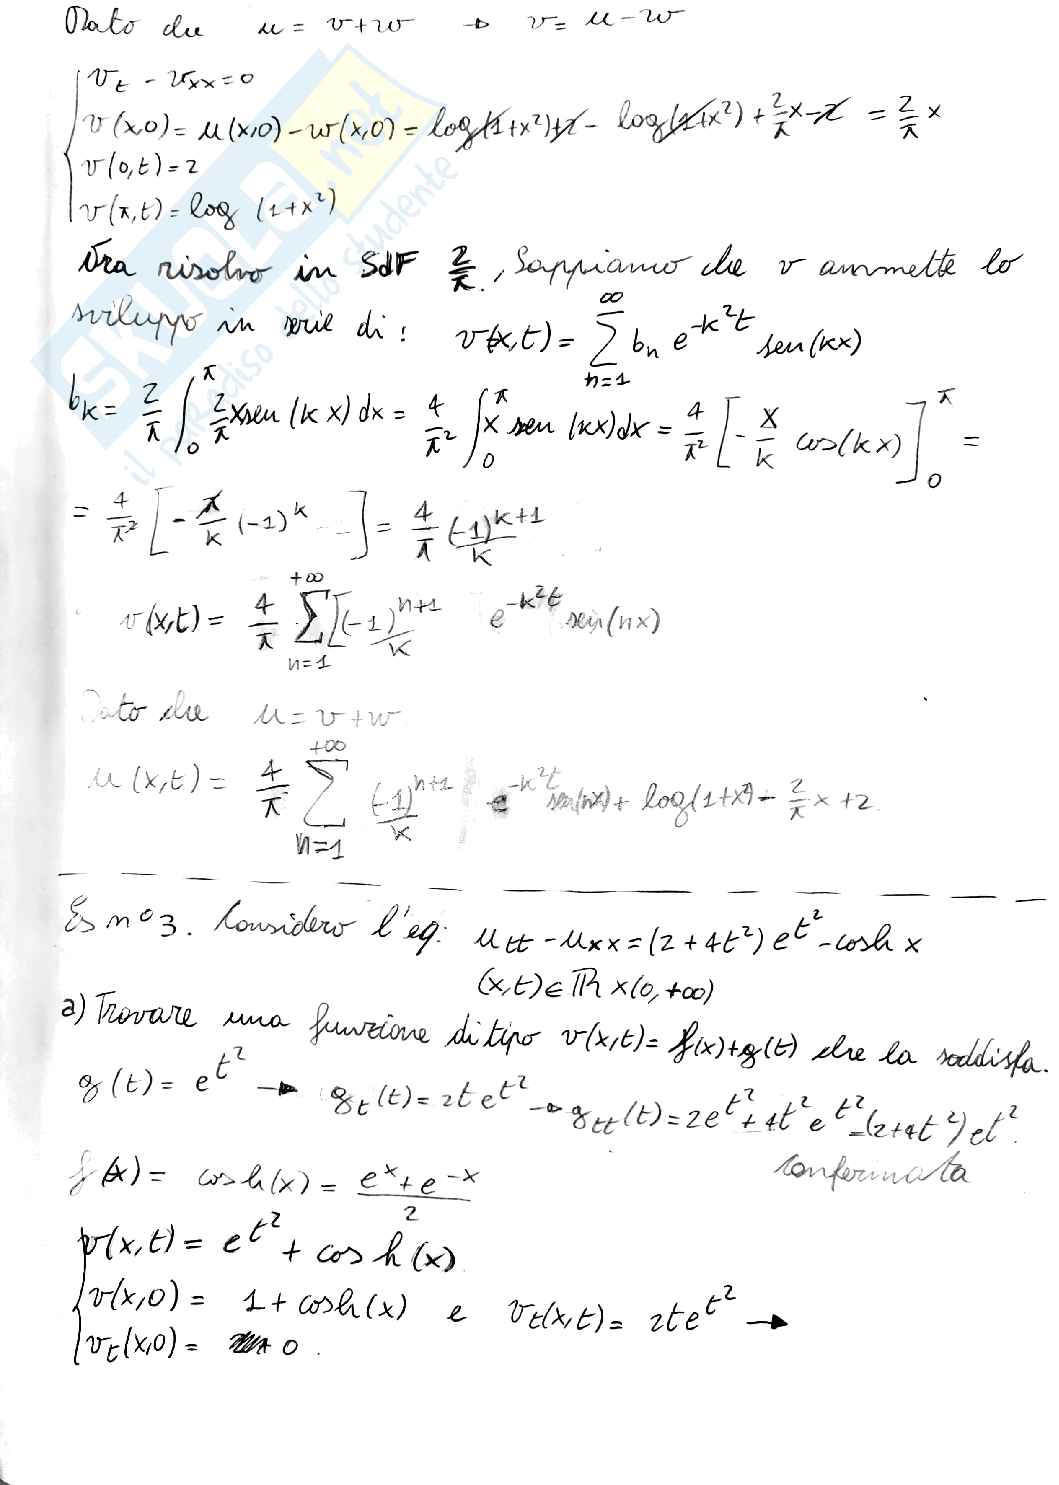 Dato che u = v+w → v = u-w
v_t - v_xx = 0
v(x,0) = u(x,0) - w(x,0) = log(1+x²)+2 - log(1+x²) + 2/π x - 2 = 2/π x
v(0,t) = 2
v(π,t) = log (1+x²)
Ora risolvo in SdF 2/π. Sappiamo che v ammette lo
sviluppo in serie di: v(x,t) = ∑_{n=1}^{∞} b_n e^{-k²t} sen(kx)
b_k = 2/π ∫_0^π 2/π x sen(kx) dx = 4/π² ∫_0^π x sen(kx) dx = 4/π² [ - x/k cos(kx) ]_0^π =
= 4/π² [ - π/k (-1)^k ] = 4/π (-1)^{k+1}/k
v(x,t) = 4/π ∑_{n=1}^{+∞} [(-1)^{n+1}/k e^{-k²t} sen(nx)
Dato che u = v+w
u(x,t) = 4/π ∑_{n=1}^{+∞} (-1)^{n+1}/k e^{-k²t} sen(nx) + log(1+x²) - 2/π x + 2
Es n° 3. Considero l'eq: u_tt - u_xx = (2+4t²) e^{t²} - cosh x
(x,t) ∈ ℝ x (0,+∞)
a) Trovare una funzione di tipo v(x,t) = f(x)+g(t) che la soddisfa.
g(t) = e^{t²} → g_t(t) = 2t e^{t²} → g_tt(t) = 2e^{t²} + 4t² e^{t²} = (2+4t²) e^{t²}.
confermata
f(x) = cosh(x) = (e^x + e^{-x})/2
v(x,t) = e^{t²} + cosh(x)
v(x,0) = 1 + cosh(x) e v_t(x,t) = 2t e^{t²} →
v_t(x,0) = 0.
skuola.net
il paradiso dello studente